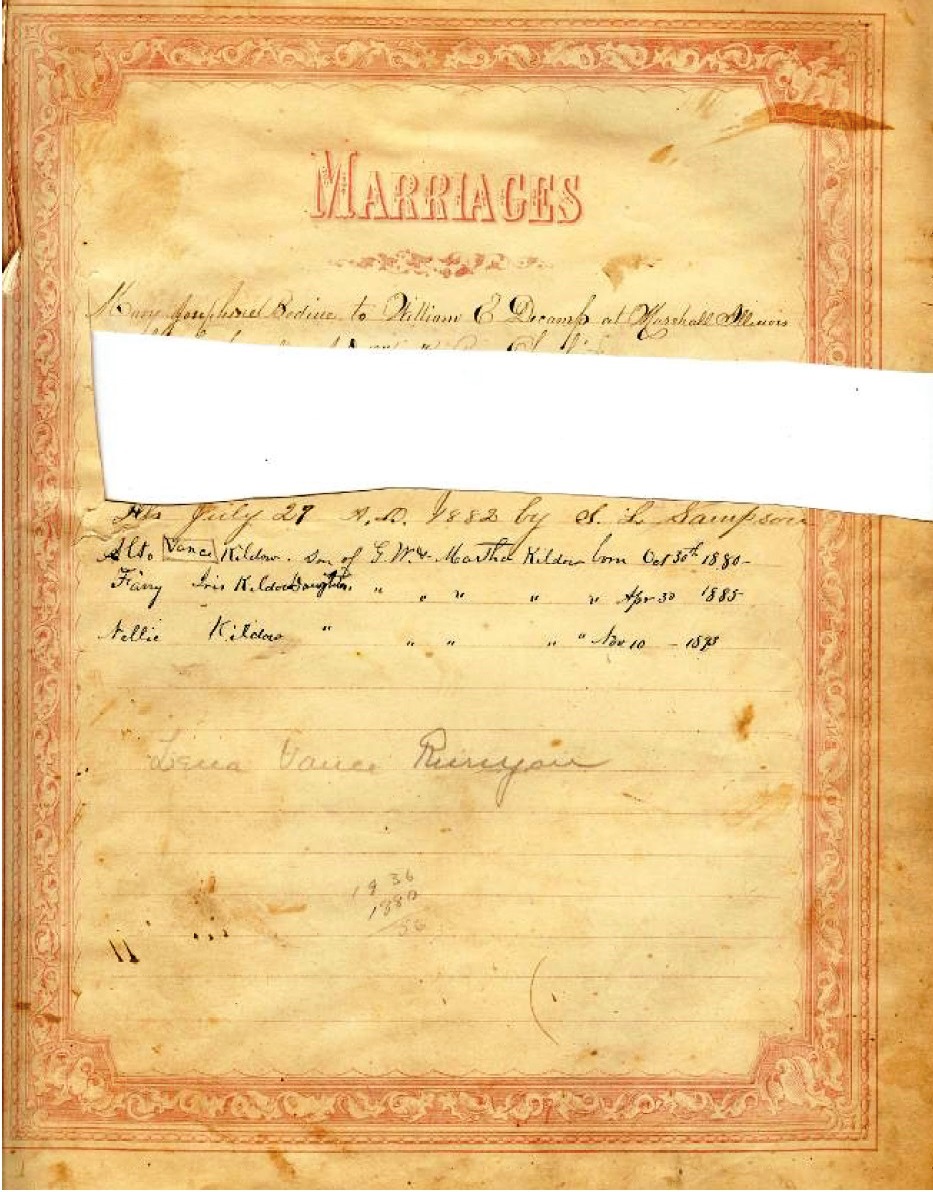 MARRIAGES
Mary Josephine Bodine to William E Decamp at Marshall Illinois
July 27 A.D. 1882 by S. L. Sampson
Alto Vance Kildow. Son of G. W. & Martha Kildow born Oct 30th 1880-
Fairy Iris Kildow Daughter " " " " " Apr 30 1885
Nellie Kildow " " " " " Nov 10 - 1893
Lena Vance Runyan
1936
1880
56